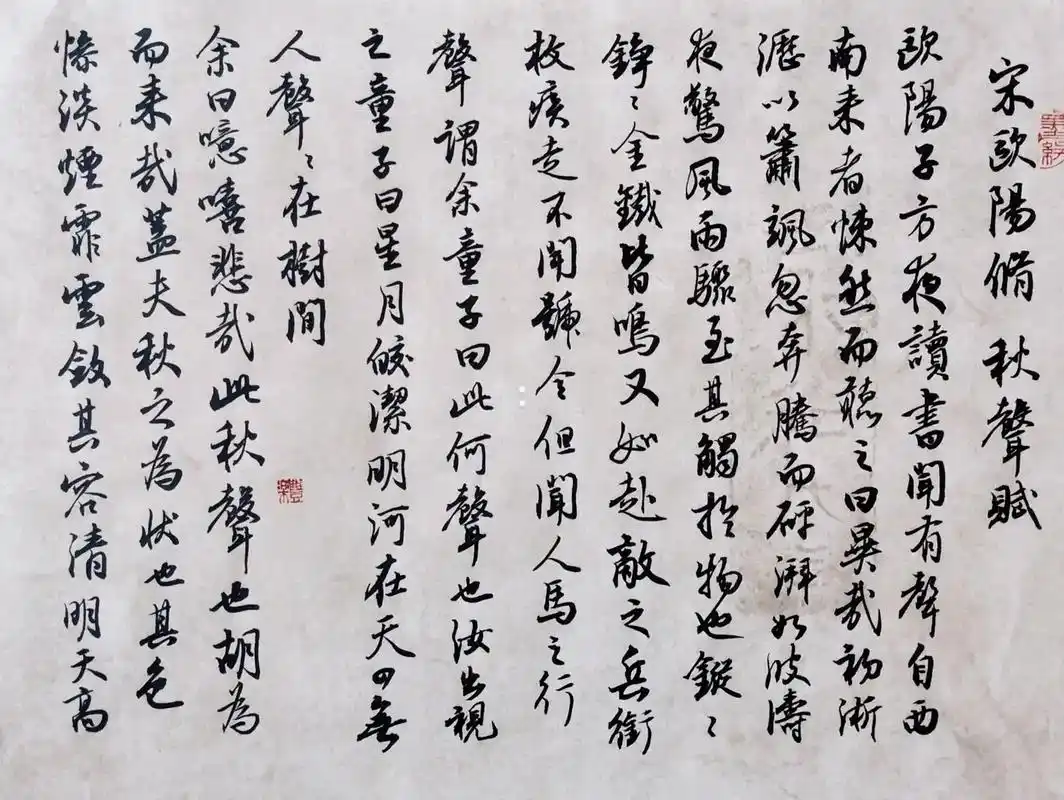 宋歐陽脩秋聲賦
歐陽子方夜讀書聞有聲自西
南来者悚然而聽之曰異哉初淅
瀝以簫颯忽奔騰而砰湃如波濤
夜驚風雨驟至其觸於物也鏦〻
錚〻金鐵皆鳴又如赴敵之兵銜
枚疾走不聞號令但聞人馬之行
聲謂余童子曰此何聲也汝出視
之童子曰星月皎潔明河在天四無
人聲〻在樹間
余曰噫嘻悲哉此秋聲也胡為
而来哉蓋夫秋之為狀也其色
慘淡煙霏雲斂其容清明天高